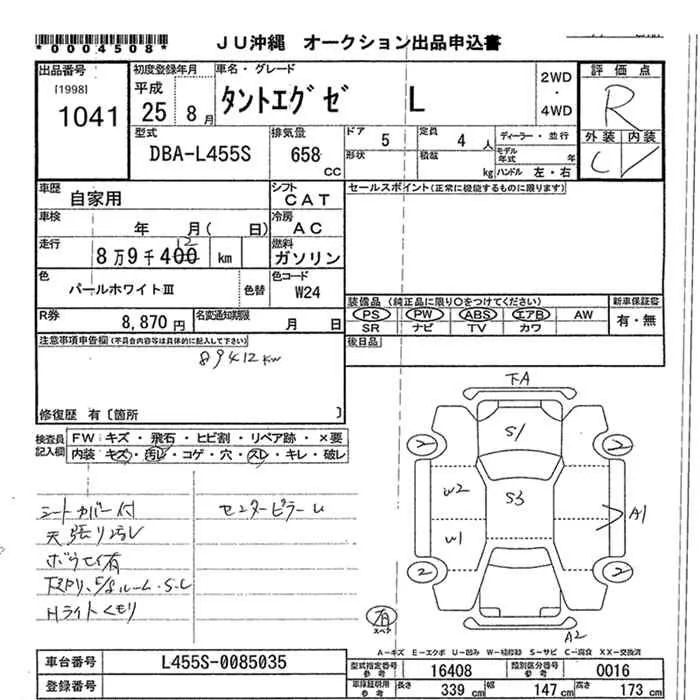 *0004508*
JU沖縄 オークション出品申込書
出品番号 初度登録年月 車名・グレード 2WD ・ 4WD 評価点
[1998] 1041 平成 25 8月 タントエグゼ L R
外装 内装
C
型式 排気量 ドア 5 定員 4人 ディーラー・並行
DBA-L455S 658 CC 形状 積載 kg モデル年式 年
ハンドル 左・右
車歴 自家用 シフト CAT セールスポイント(正常に機能するものに限ります)
車検 年 月( 日) 冷房 AC
走行 8万9千400 12 km 燃料 ガソリン
色 パールホワイトⅢ 色替 色コード W24
装備品(純正品に限り○をつけてください) 新車保証書
R券 8,870円 名変通知期限 月 日 PS PW ABS エアB AW 有・無
SR ナビ TV カワ
注意事項申告欄(不具合内容等は具体的に記入して下さい) 後日品
89412km
修復歴 有〔箇所 〕
検査員記入欄 FW キズ・飛石・ヒビ割・リペア跡・×要
内装 キズ・汚レ・コゲ・穴・スレ・キレ・破レ
シートカバー付
天張り汚レ
Hライトくもり
センターピラーU
下A
S1
2 2
W2 S3 A1
W1
2 2
有
スペア
A2
A-キズ E-エクボ U-凹み W-補修跡 S-サビ C-腐食 XX-交換済
車台番号 L455S-0085035 型式指定番号 参考 16408 類別区分番号 参考 0016
登録番号 車庫証明用 参考 長さ 339 cm 幅 147 cm 高さ 173 cm